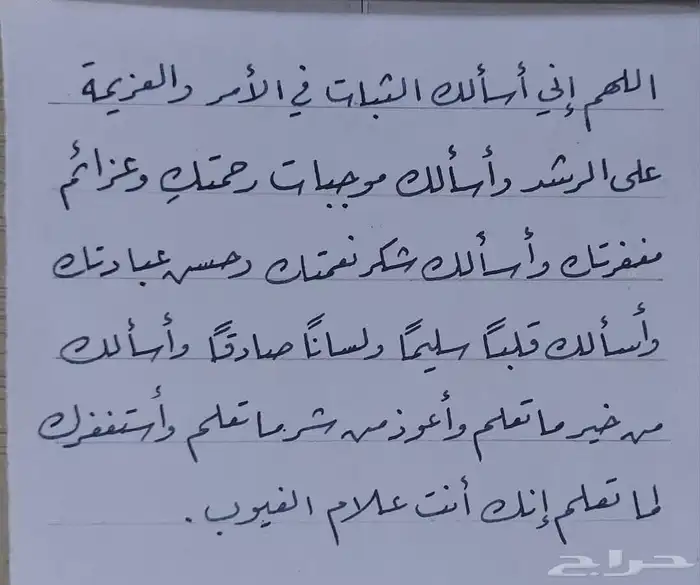 اللهم إني أسألك الثبات في الأمر والعزيمة
على الرشد وأسألك موجبات رحمتك وعزائم
مغفرتك وأسألك شكر نعمتك وحسن عبادتك
وأسألك قلباً سليماً ولساناً صادقاً وأسألك
من خير ما تعلم وأعوذ من شر ما تعلم وأستغفرك
لما تعلم إنك أنت علام الغيوب.
حراج